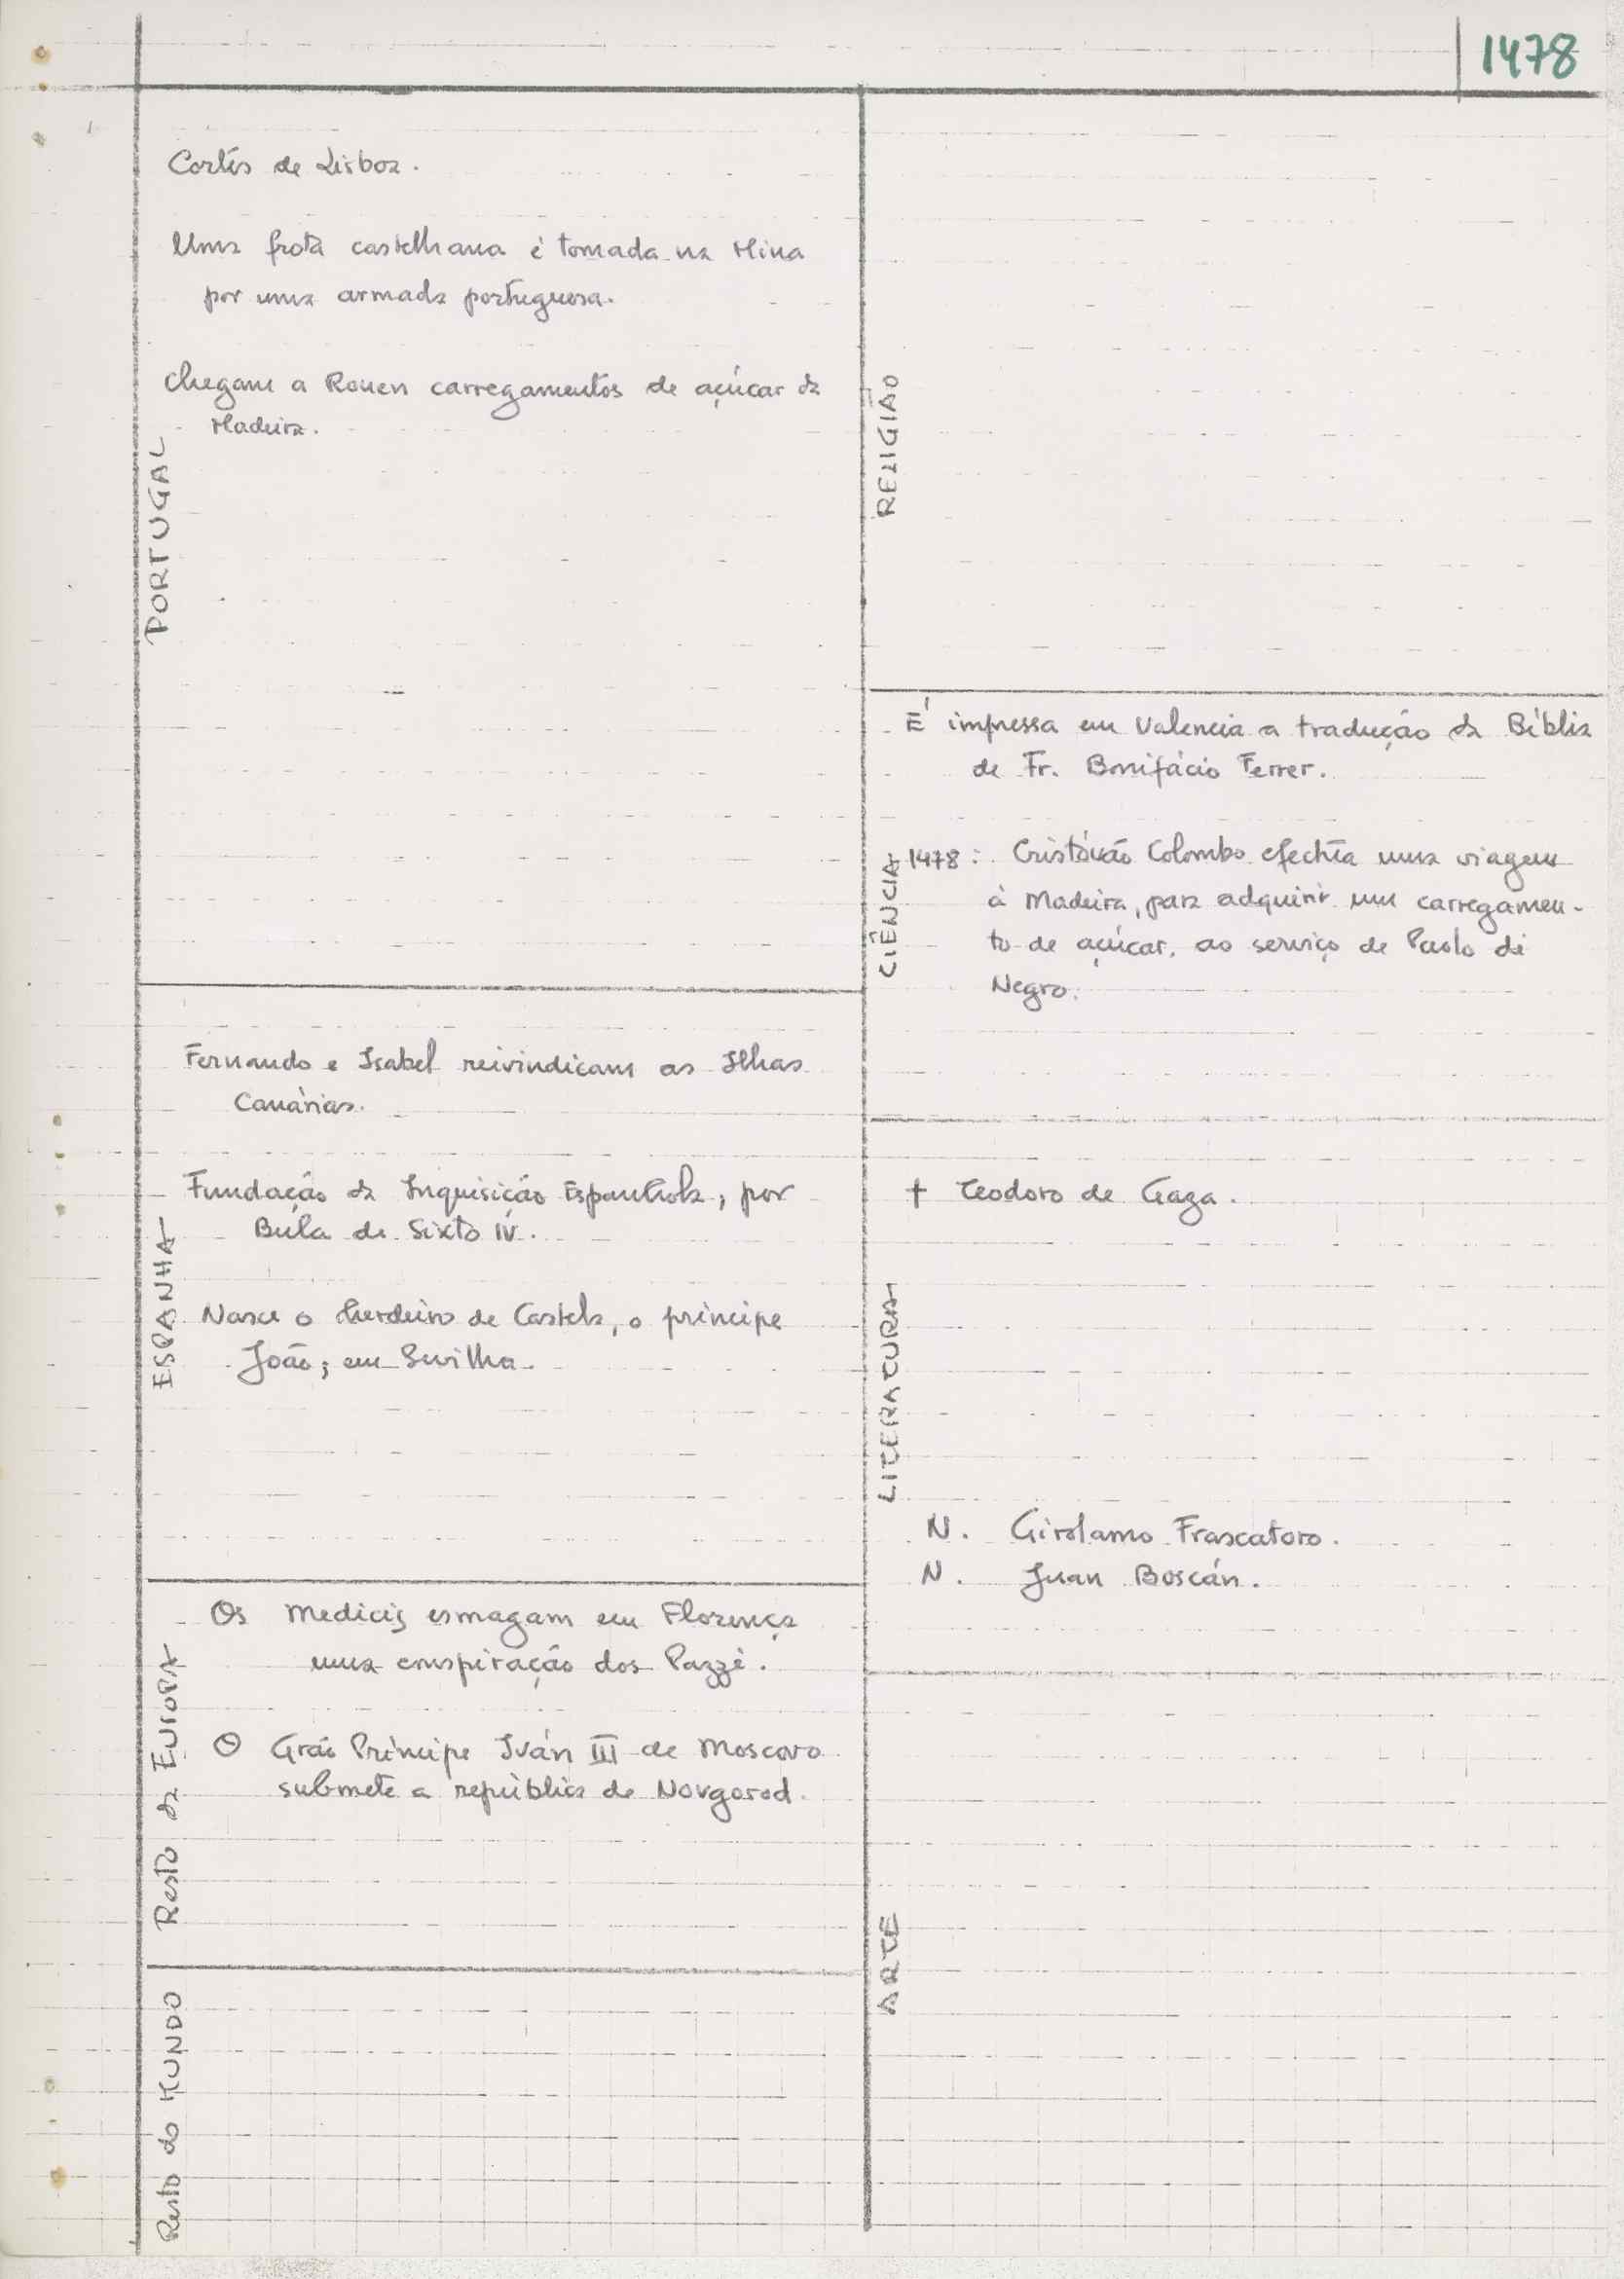 1478
PORTUGAL
Cortes de Lisboa.
Uma frota castelhana é tomada na Mina
por uma armada portuguesa.
Chegam a Rouen carregamentos de açúcar da
Madeira.
ESPANHA
Fernando e Isabel reivindicam as Ilhas
Canárias.
Fundação da Inquisição Espanhola, por
Bula de Sixto IV.
Nasce o herdeiro de Castela, o príncipe
João, em Sevilha.
Resto da EUROPA
Os Medicis esmagam em Florença
uma conspiração dos Pazzi.
O Grão Príncipe Iván III de Moscovo
submete a república de Novgorod.
Resto do MUNDO
RELIGIÃO
CIÊNCIA
É impressa em Valencia a tradução da Bíblia
de Fr. Bonifácio Ferrer.
1478: Cristóvão Colombo efectúa uma viagem
à Madeira, para adquirir um carregamen-
to de açúcar, ao serviço de Paolo di
Negro.
LITERATURA
† Teodoro de Gaza.
N. Girolamo Frascatoro.
N. Juan Boscán.
ARTE